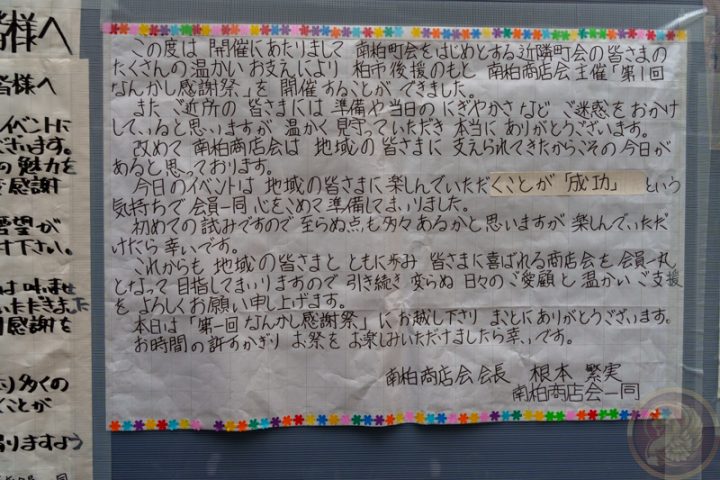 皆様へ
皆様へ
イベントに
ございます。
の魅力を
感謝
要望が
け下さい。
いただきました
感謝を
多くの
ことが
りますよう
この度は 開催にあたりまして 南柏町会をはじめとする近隣町会の皆さまの
たくさんの温かいお支えにより 柏市後援のもと 南柏商店会主催「第1回
なんかし感謝祭」を 開催することが できました。
また ご近所の 皆さまには 準備や当日の にぎやかさなど ご迷惑を おかけ
していると思いますが 温かく 見守っていただき 本当に ありがとうございます。
改めて 南柏商店会は 地域の 皆さまに 支えられてきたからこその今日が
あると思っております。
今日のイベントは 地域の皆さまに楽しんでいただくことが「成功」 という
気持ちで 会員一同 心をこめて 準備してまいりました。
初めての試みですので 至らぬ点も多々あるかと思いますが 楽しんでいただ
けたら 幸いです。
これからも 地域の皆さまと ともに歩み 皆さまに喜ばれる商店会を 会員一丸
となって 目指してまいりますので 引き続き 変らぬ 日々の ご愛顧と 温かい ご支援
を よろしくお願い申し上げます。
本日は「第一回 なんかし感謝祭」にお越し下り まことにありがとうございます。
お時間の許すかぎり お祭を お楽しみいただけましたら幸いです。
南柏商店会 会長 根本 繁実
南柏商店会一同